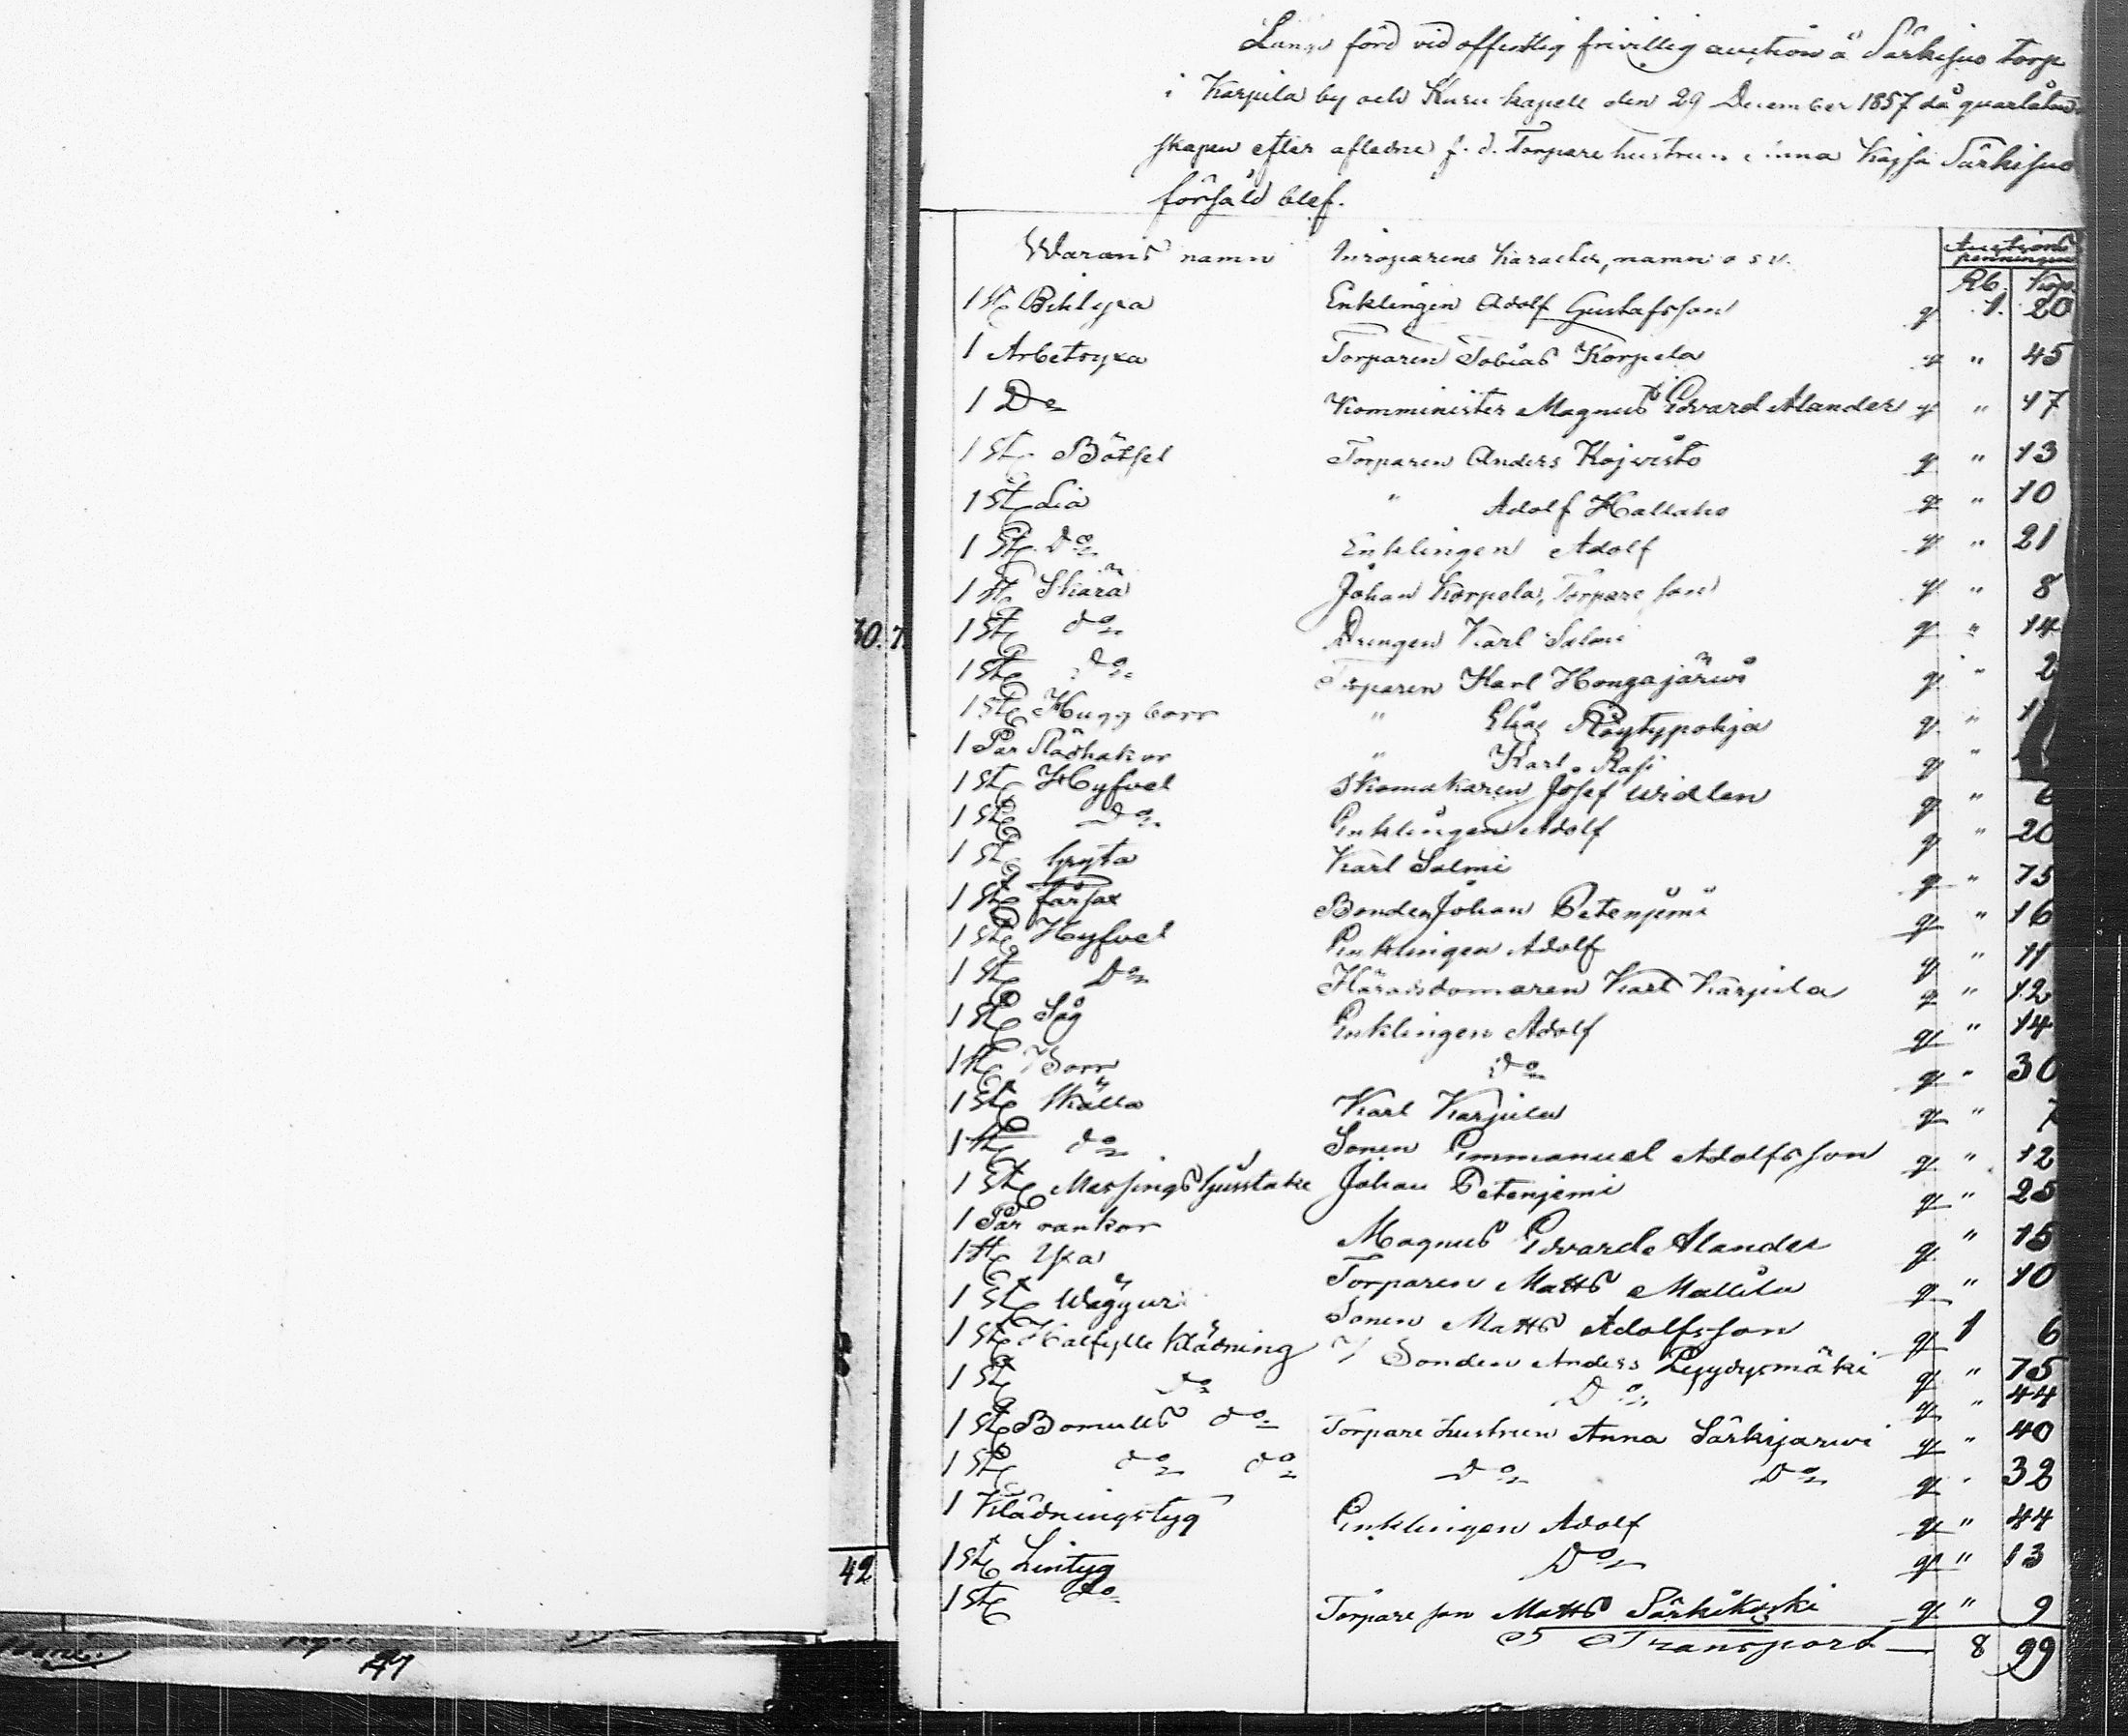 förd vid offentlig frivillig auction å Särkisuo torp
i Karjula by och Kuru kapell den 29 December 1857 då quarlåten
skapen efter aflidne f. d. Torpare hustrun Kajsa Särkisuo
försåld blef.
Warans namn Inroparens karacter, namn o s v. Auctions penningar
Rb. Kop.
1 st Bihlyxa Enklingen Adolf Gustafsson 1. 20
1 Arbetsyxa Torparen Tobias Korpela " 45
1 Do Komminister Magnus Edvard Alander " 17
1 st Bötsel Torparen Anders Kojvisto " 13
1 st Lia " Adolf Hallaho " 10
1 st Do Enklingen Adolf " 21
1 st Skära Johan Korpela, Torpare son " 8
30. 7
1 st do Drengen Karl Salmi " 14
1 st Do Torparen Karl Hongajärwi " 2
1 st Hugg borr " Elias Röytypohja "
1 Par " Karl Rasi "
1 st Hyfvel Skomakaren Josef Widlen " 6
1 st Do Enklingen Adolf " 20
1 st Gryta Karl Salmi " 75
1 st fårsax Bonden Johan Petenjemi " 16
1 st Hyfvel Enklingen Adolf " 11
1 st Do Häradsdomaren Karl Karjula " 12
1 st Såg Enklingen Adolf " 14
1 st Borr do " 30
1 st Karl Karjula " 7
1 st do Sonen Emmanuel Adolfsson " 12
1 st Messings ljusstake Johan Petenjemi " 25
1 Par Magnus Edvard Alander " 15
1 st Yxa Torparen Matts Mattila " 10
1 st Wäggur Sonen Matts Adolfsson 1 6
1 st Halfylle Klädning Bonden Anders Pyydysmäki " 75
1 st Do Do " 44
1 st Bomulls do Torpare hustrun Anna Särkijarwi " 40
1 st do do Do Do " 32
1 Klädningstyg Enklingen Adolf " 44
1 st Lintyg Do " 13
42
1 st do Torpare son Matts Särkikoski " 9
Transport 8 99